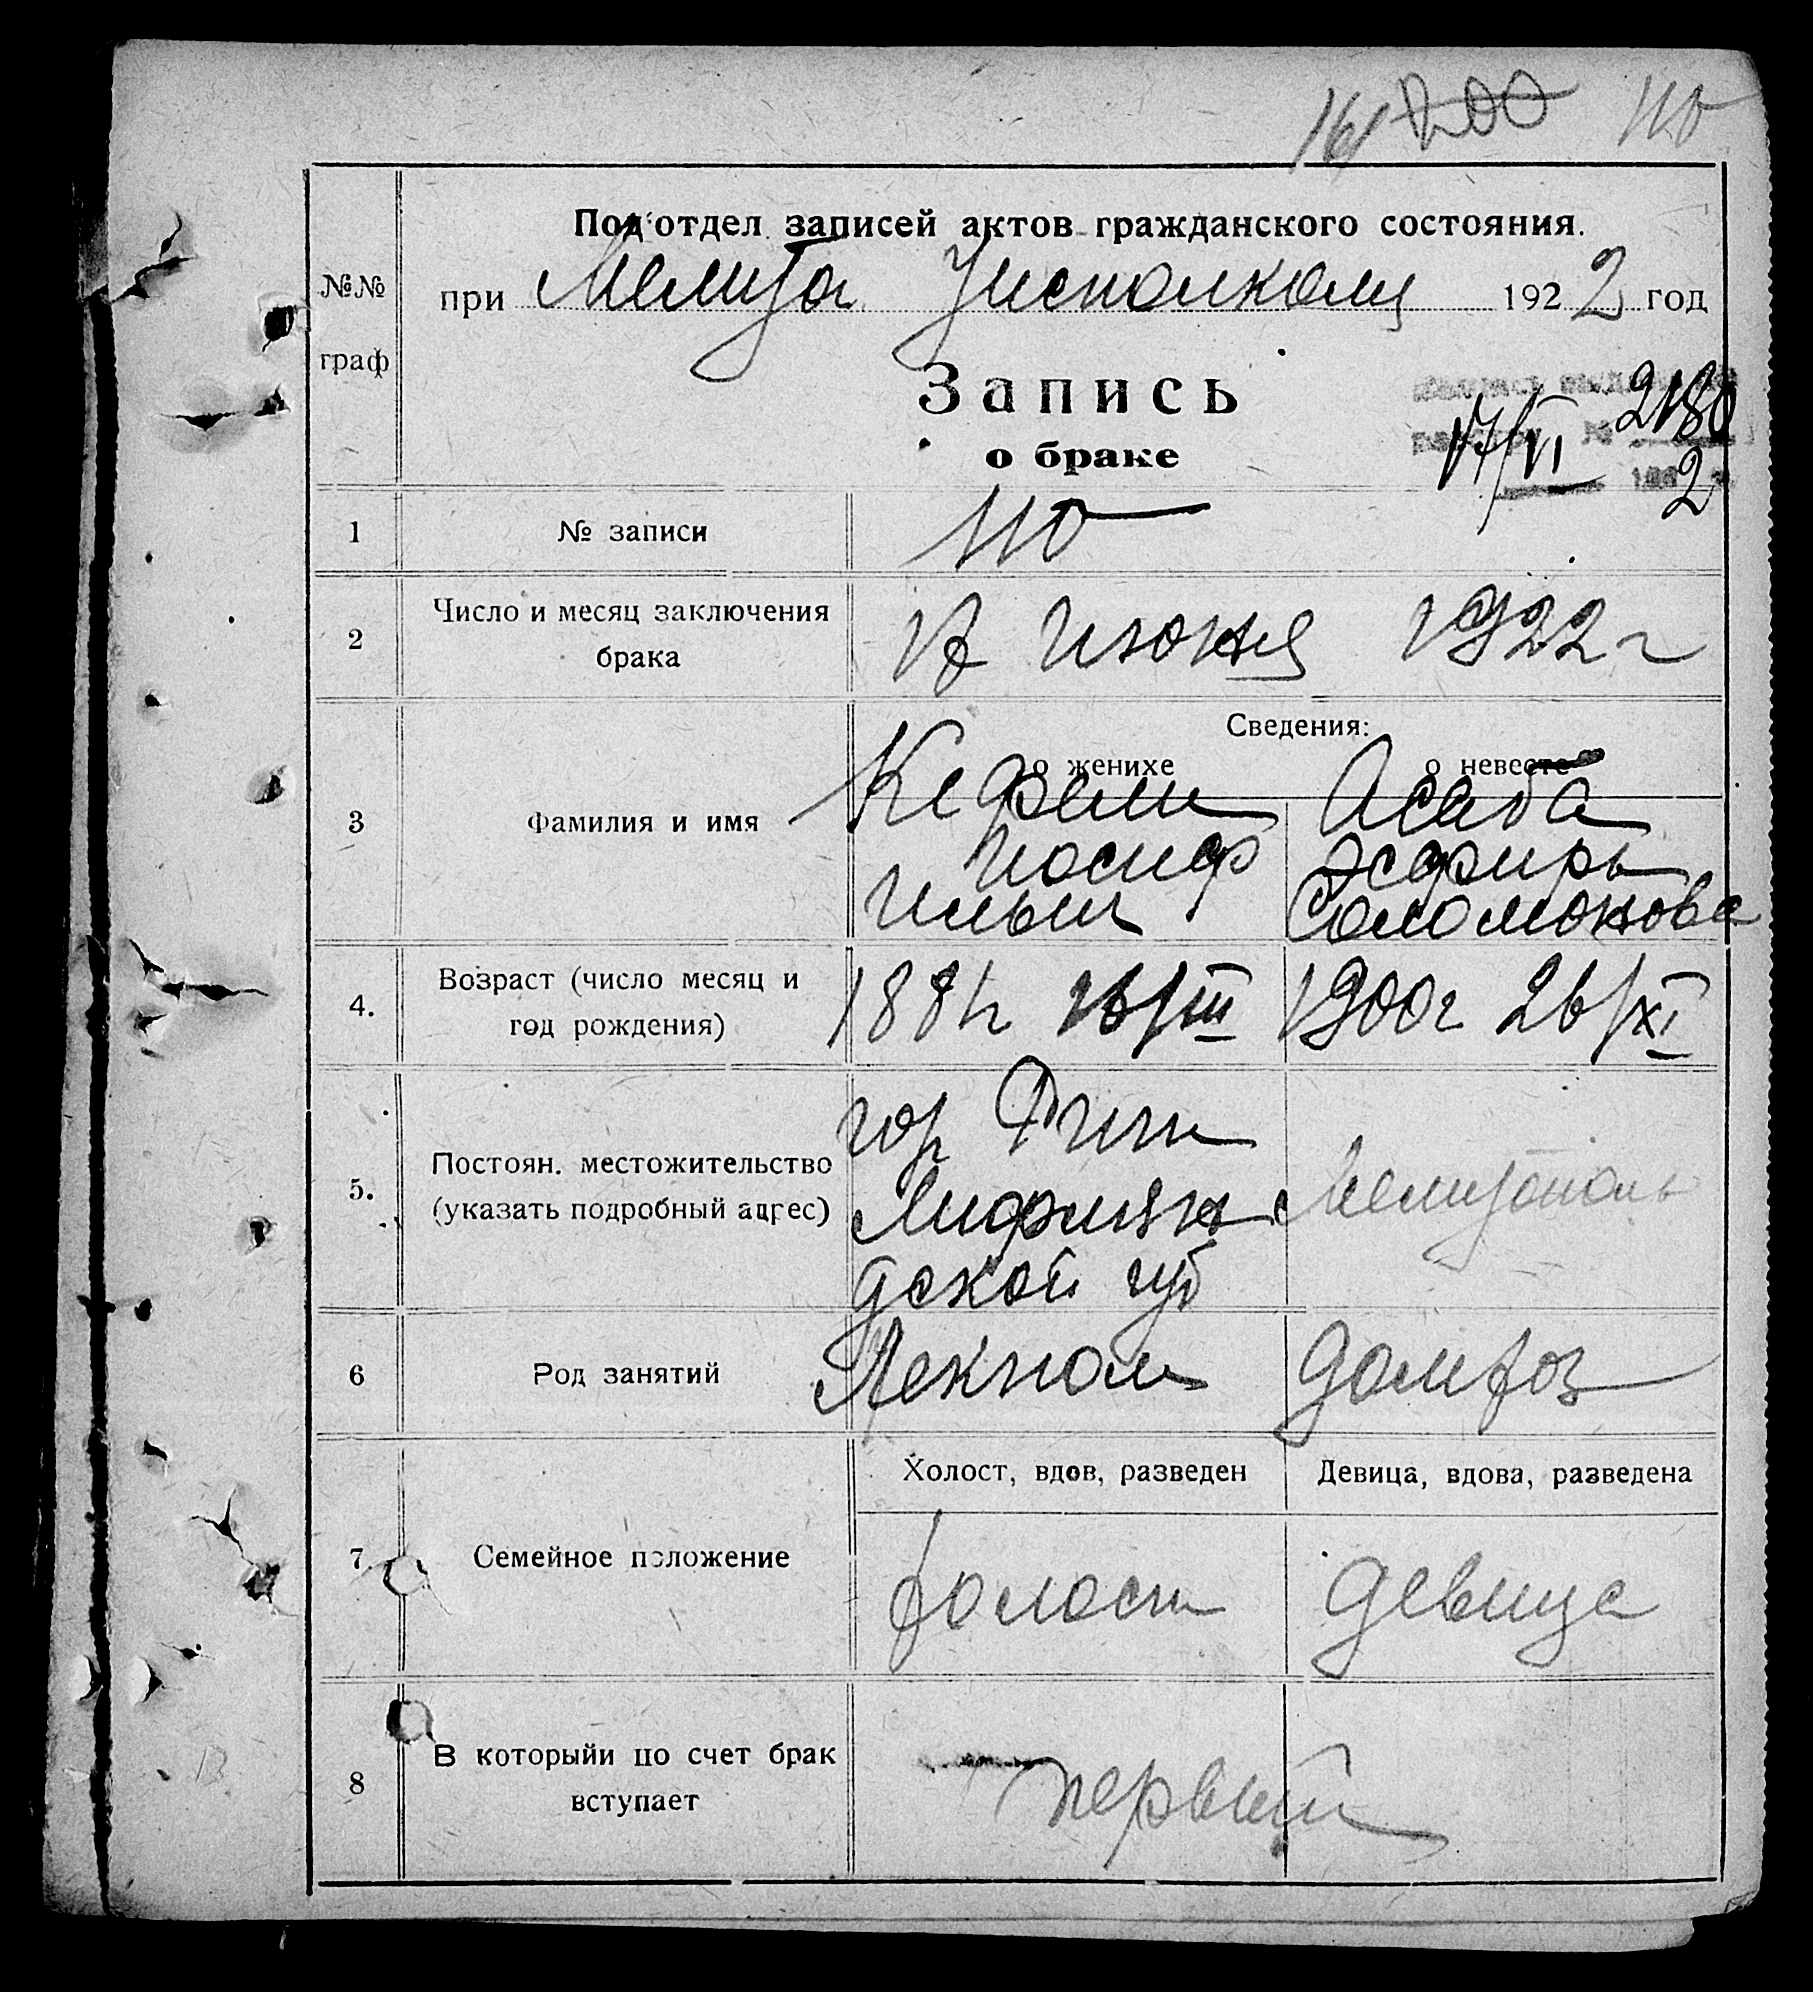 161 200 110
Под'отдел записей актов гражданского состояния.
№№
при Мелитоп Уисполкому 1922 год
граф
Запись
2180
17/VI
о браке
2
1 № записи 110
2 Число и месяц заключения брака 17 июня 1922 г
Сведения:
о женихе о невесте
3 Фамилия и имя
Иосиф Эсфирь
Ильич Соломоновна
4. Возраст (число месяц и
год рождения)
/III 1900г 26/XI
5. Постоян. местожительство
(указать подробный адрес)
гор
Мелитополь
ской губ
6 Род занятий
Лекпом домхоз
Холост, вдов, разведен Девица, вдова, разведена
7 Семейное положение
холост девица
8 В которыйи по счет брак
вступает
первый